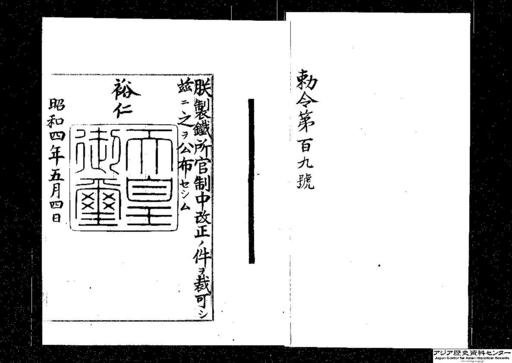 勅令第百九號
朕製鐵所官制中改正ノ件ヲ裁可シ
茲ニ之ヲ公布セシム
裕仁
天皇御璽
昭和四年五月四日
アジア歴史資料センター
Japan Center for Asian Historical Records